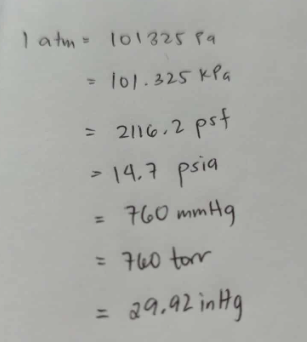 1 atm = 101325 Pa
= 101.325 KPa
= 2116.2 psf
= 14.7 psia
= 760 mmHg
= 760 torr
= 29.92 inHg